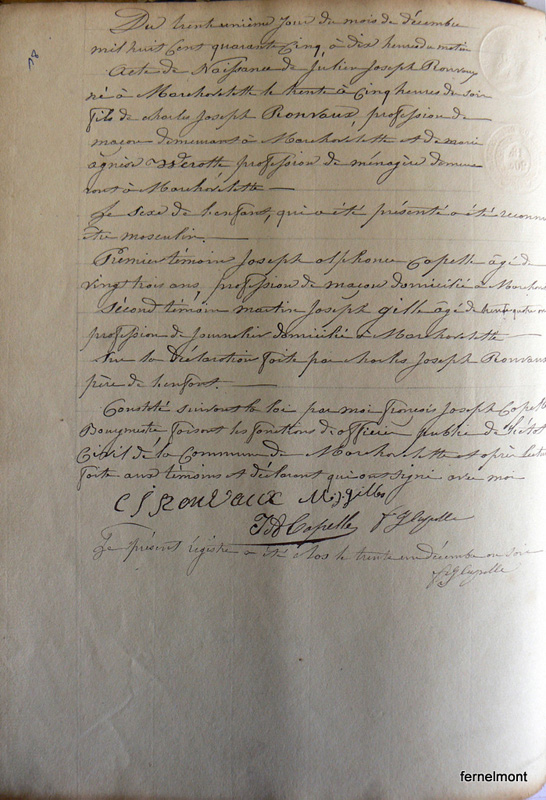 Du trente unième jour du mois de décembre
mil huit cent quarante cinq, à dix heures du matin
Acte de Naissance de Julien Joseph Rouvaux
né à Marchovelette le trente à cinq heures du soir
fils de charles Joseph Rouvaux, profession de
maçon demeurant à Marchovelette et de marie
agnèse Wérotte profession de ménagère demeu
rant à Marchovelette
Le sexe de l'enfant, qui a été présenté a été reconnu
être masculin.
Premier témoin Joseph alphonce Capelle âgé de
vingt trois ans, profession de maçon domicilié à Marchov
Second témoin martin Joseph gille âgé de
profession de Journalier domicilié à Marchovelette
Sur la Déclaration faite par charles Joseph Rouvaux
père de l'enfant.
Constaté suivant la loi par moi françois Joseph Capelle
Bourgmestre faisant les fonctions d'officier public de l'état
Civil de la Commune de Marchovelette et après lecture
faite aux témoins et déclarant qui ont signé avec moi
C J Rouvaux M J gilles
J A Capelle F J Capelle
Le présent registre a été clos le trente un décembre au soir
F J Capelle
fernelmont